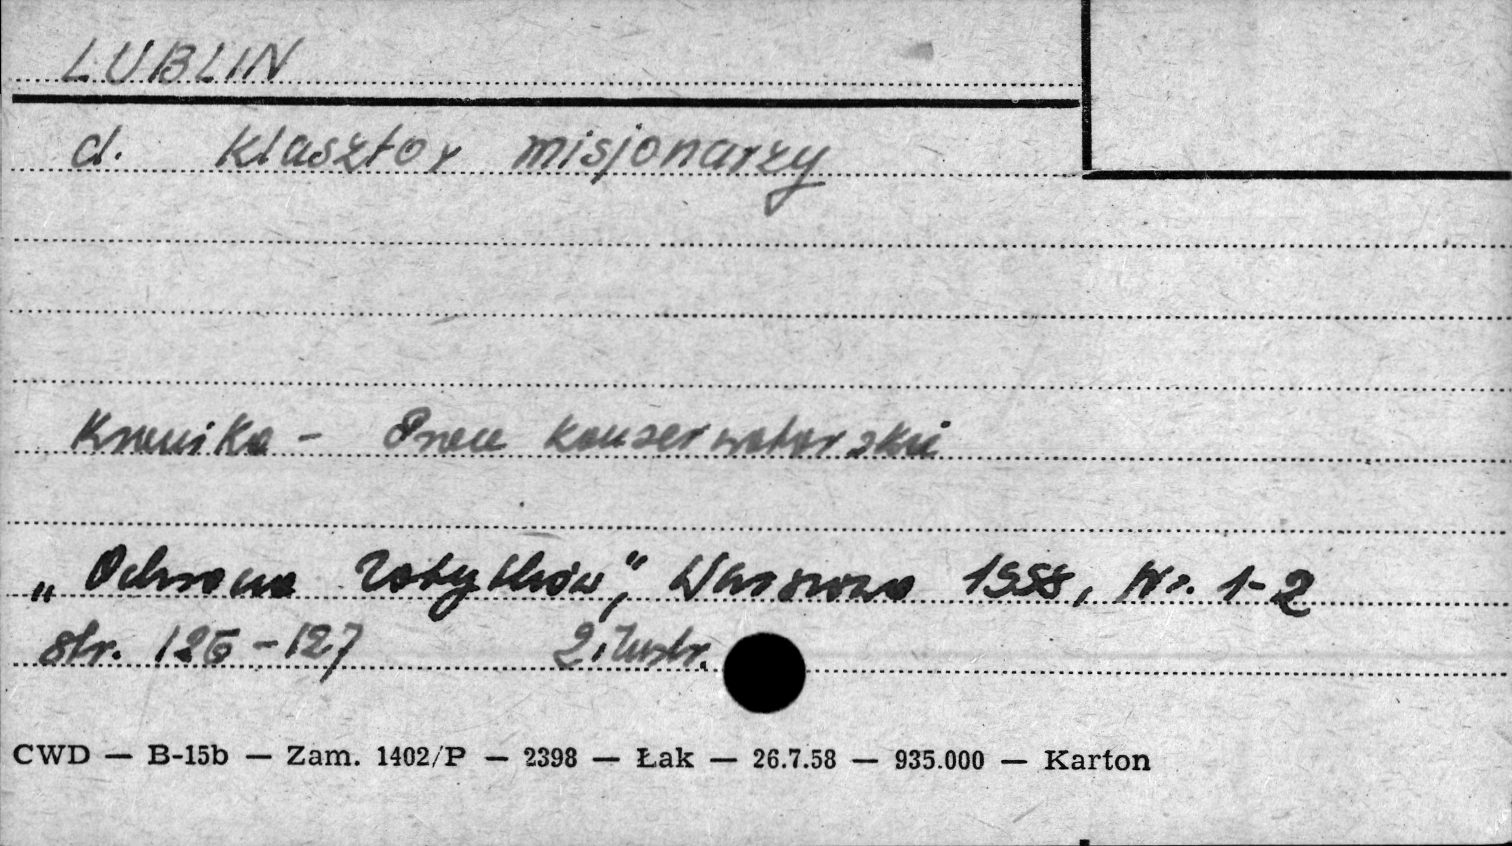 LUBLIN
d. klasztor misjonarzy
Kronika - Prace konserwatorskie
„Ochrona Zabytków”, Warszawa 1958, Nr. 1-2
str. 126-127 2 ilustr.
CWD — B-15b — Zam. 1402/P — 2398 — Łak — 26.7.58 — 935.000 — Karton